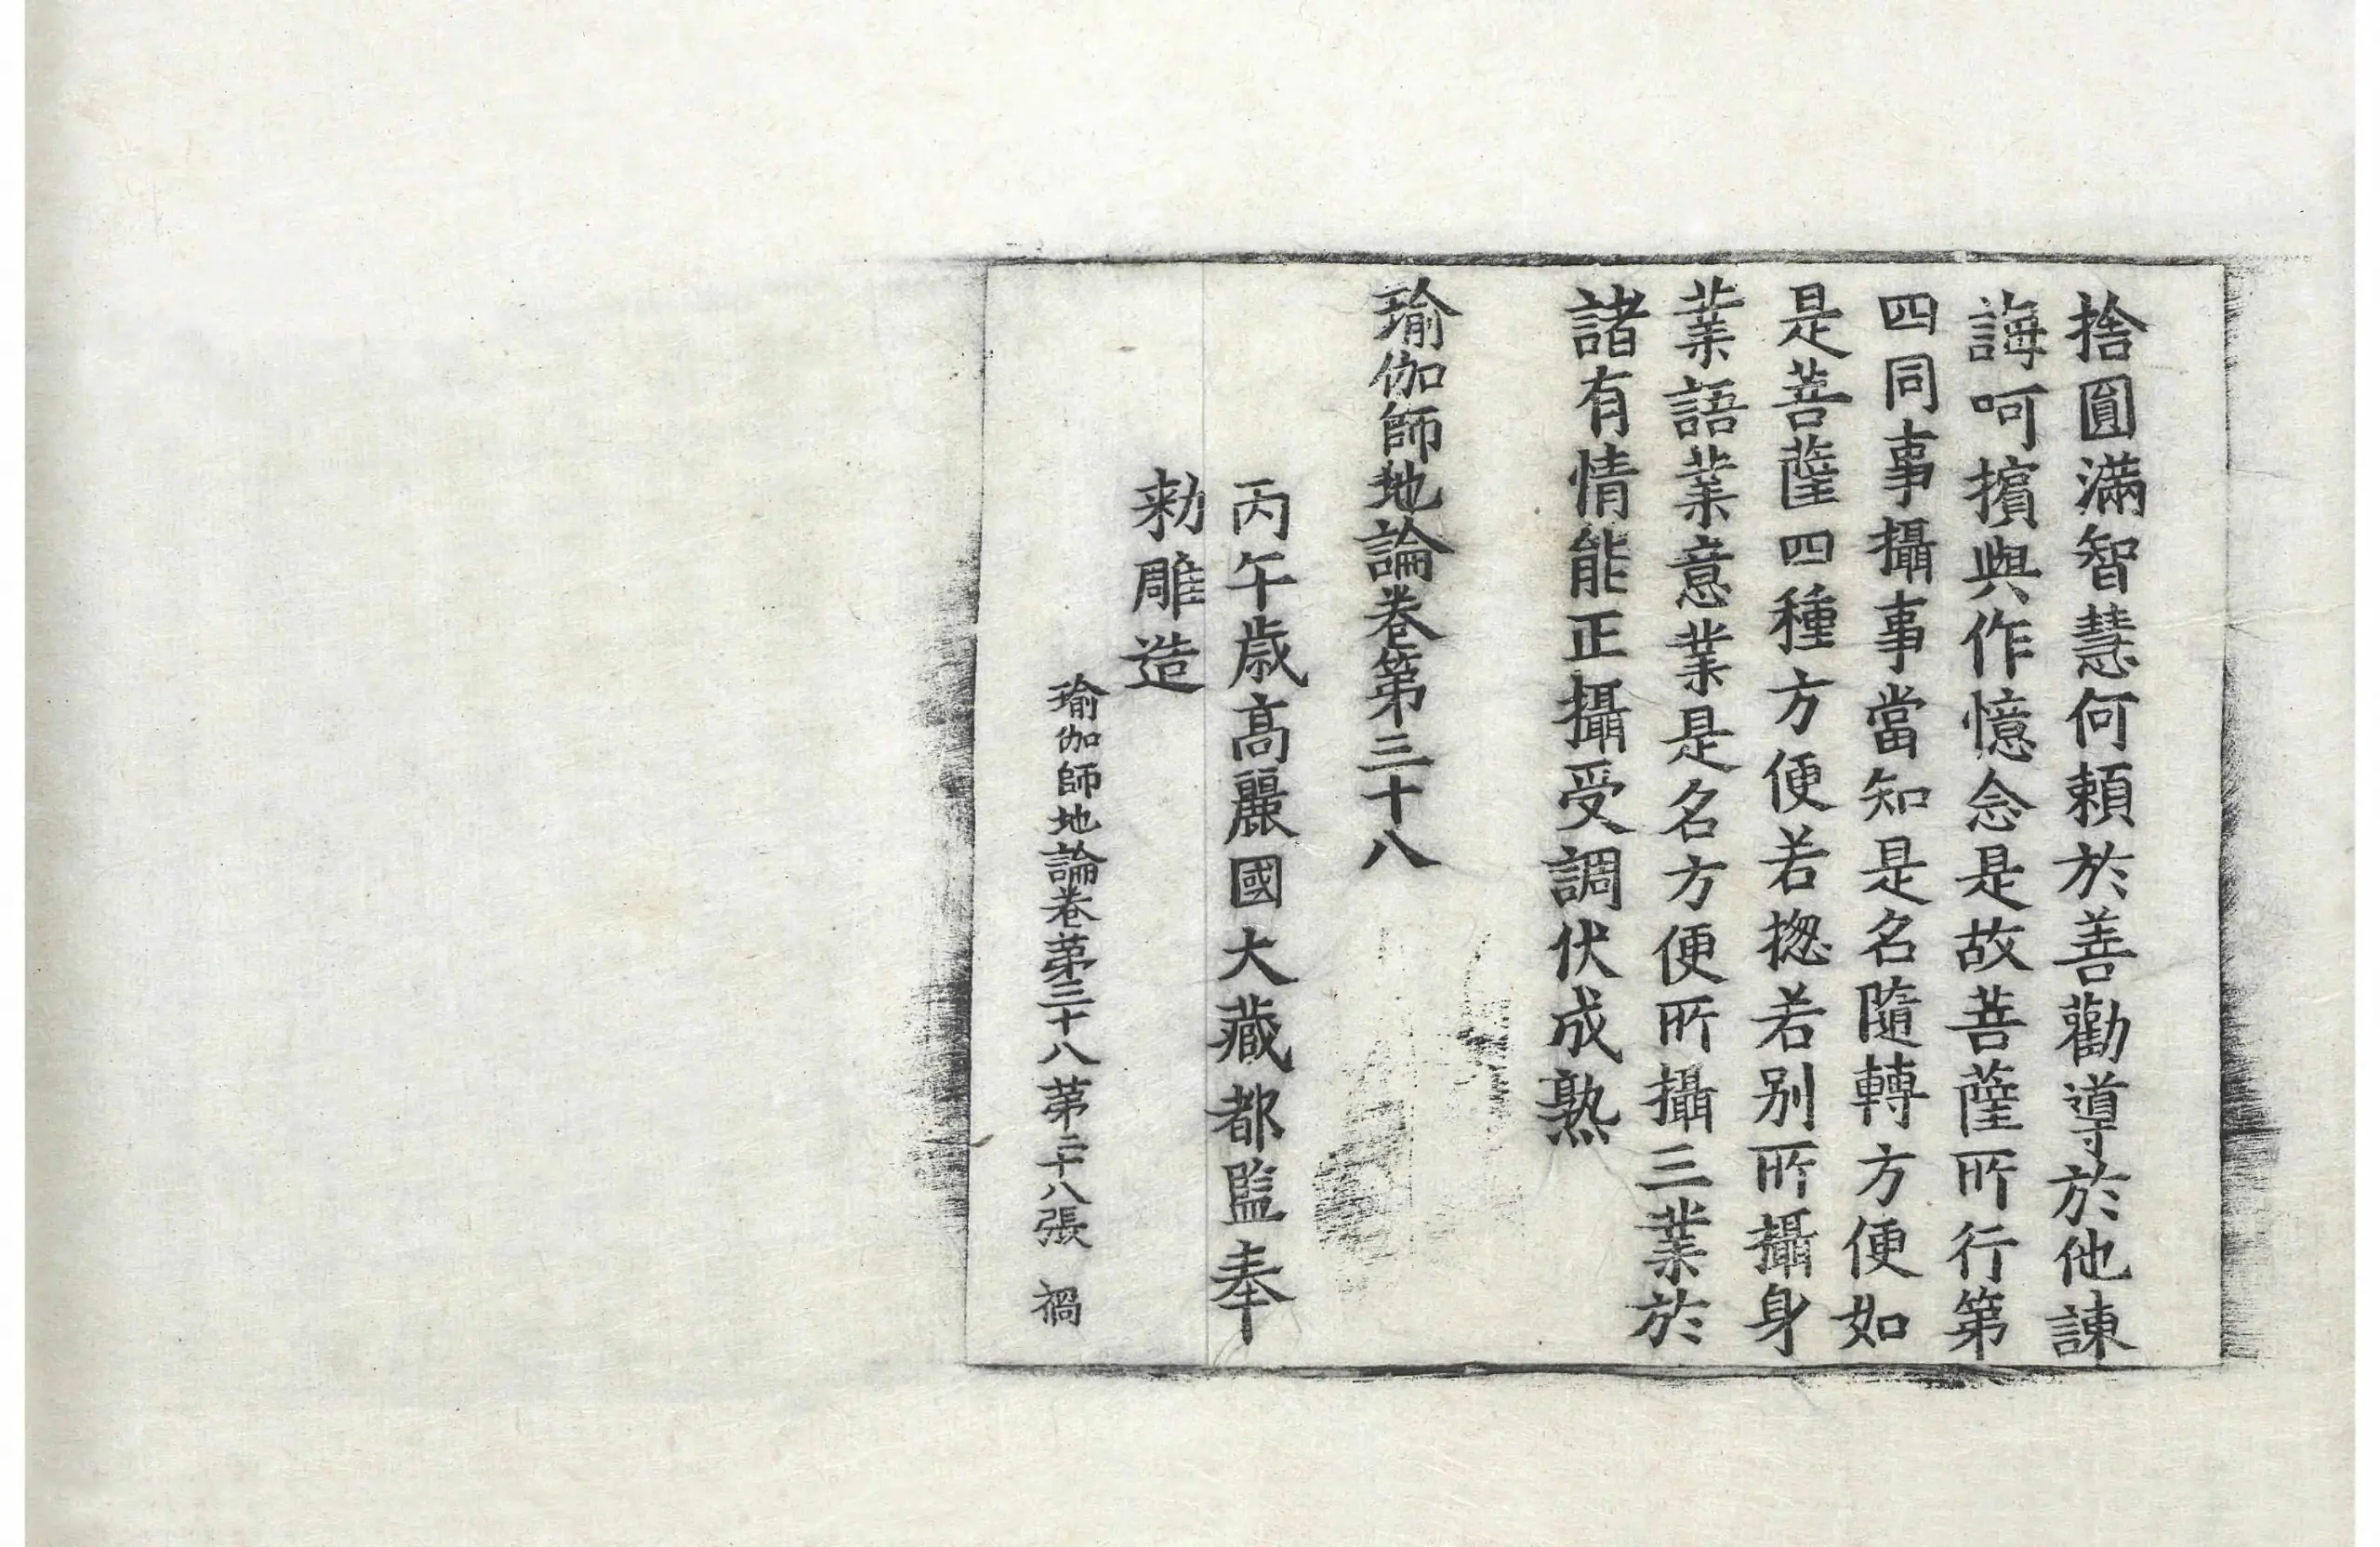 捨圓滿智慧何頼於善勸導於他諫
誨呵擯與作憶念是故菩薩所行第
四同事攝事當知是名隨轉方便如
是菩薩四種方便若揔若別所攝身
業語業意業是名方便所攝三業於
諸有情能正攝受調伏成熟
瑜伽師地論卷第三十八
丙午歳高麗國大藏都監奉
勑雕造
瑜伽師地論卷第三十八 第二十八張 禍